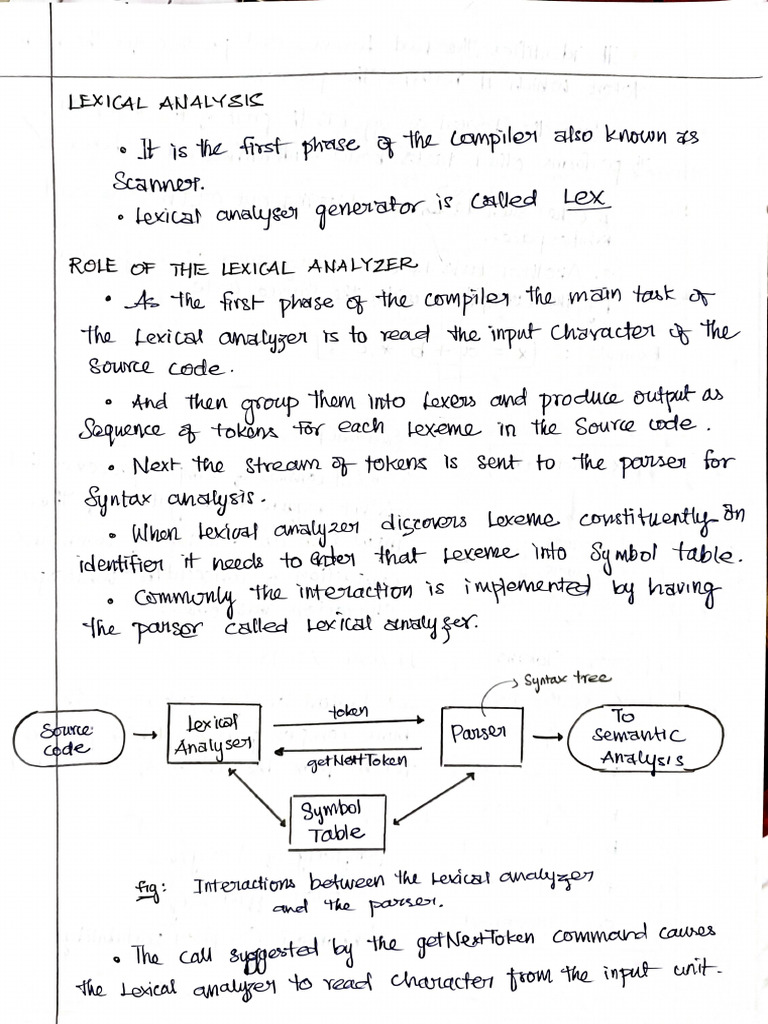 LEXICAL ANALYSIS
• It is the first phase of the compiler also known as
Scanner.
• Lexical analyser generator is called Lex
ROLE OF THE LEXICAL ANALYZER
• As the first phase of the compiler the main task of
the Lexical analyzer is to read the input Character of the
Source code.
• And then group them into Lexers and produce output as
Sequence of tokens for each Lexeme in the Source code.
• Next the stream of tokens is sent to the parser for
Syntax analysis.
• When Lexical analyzer discovers Lexeme constituently an
identifier it needs to enter that Lexeme into Symbol table.
• Commonly the interaction is implemented by having
the parser called Lexical analyzer.
Syntax tree
Source
code
Lexical
Analyser
token
getNextToken
Parser
To
Semantic
Analysis
Symbol
Table
fig: Interactions between the Lexical analyzer
and the parser.
• The call suggested by the getNextToken command causes
the Lexical analyzer to read character from the input unit.